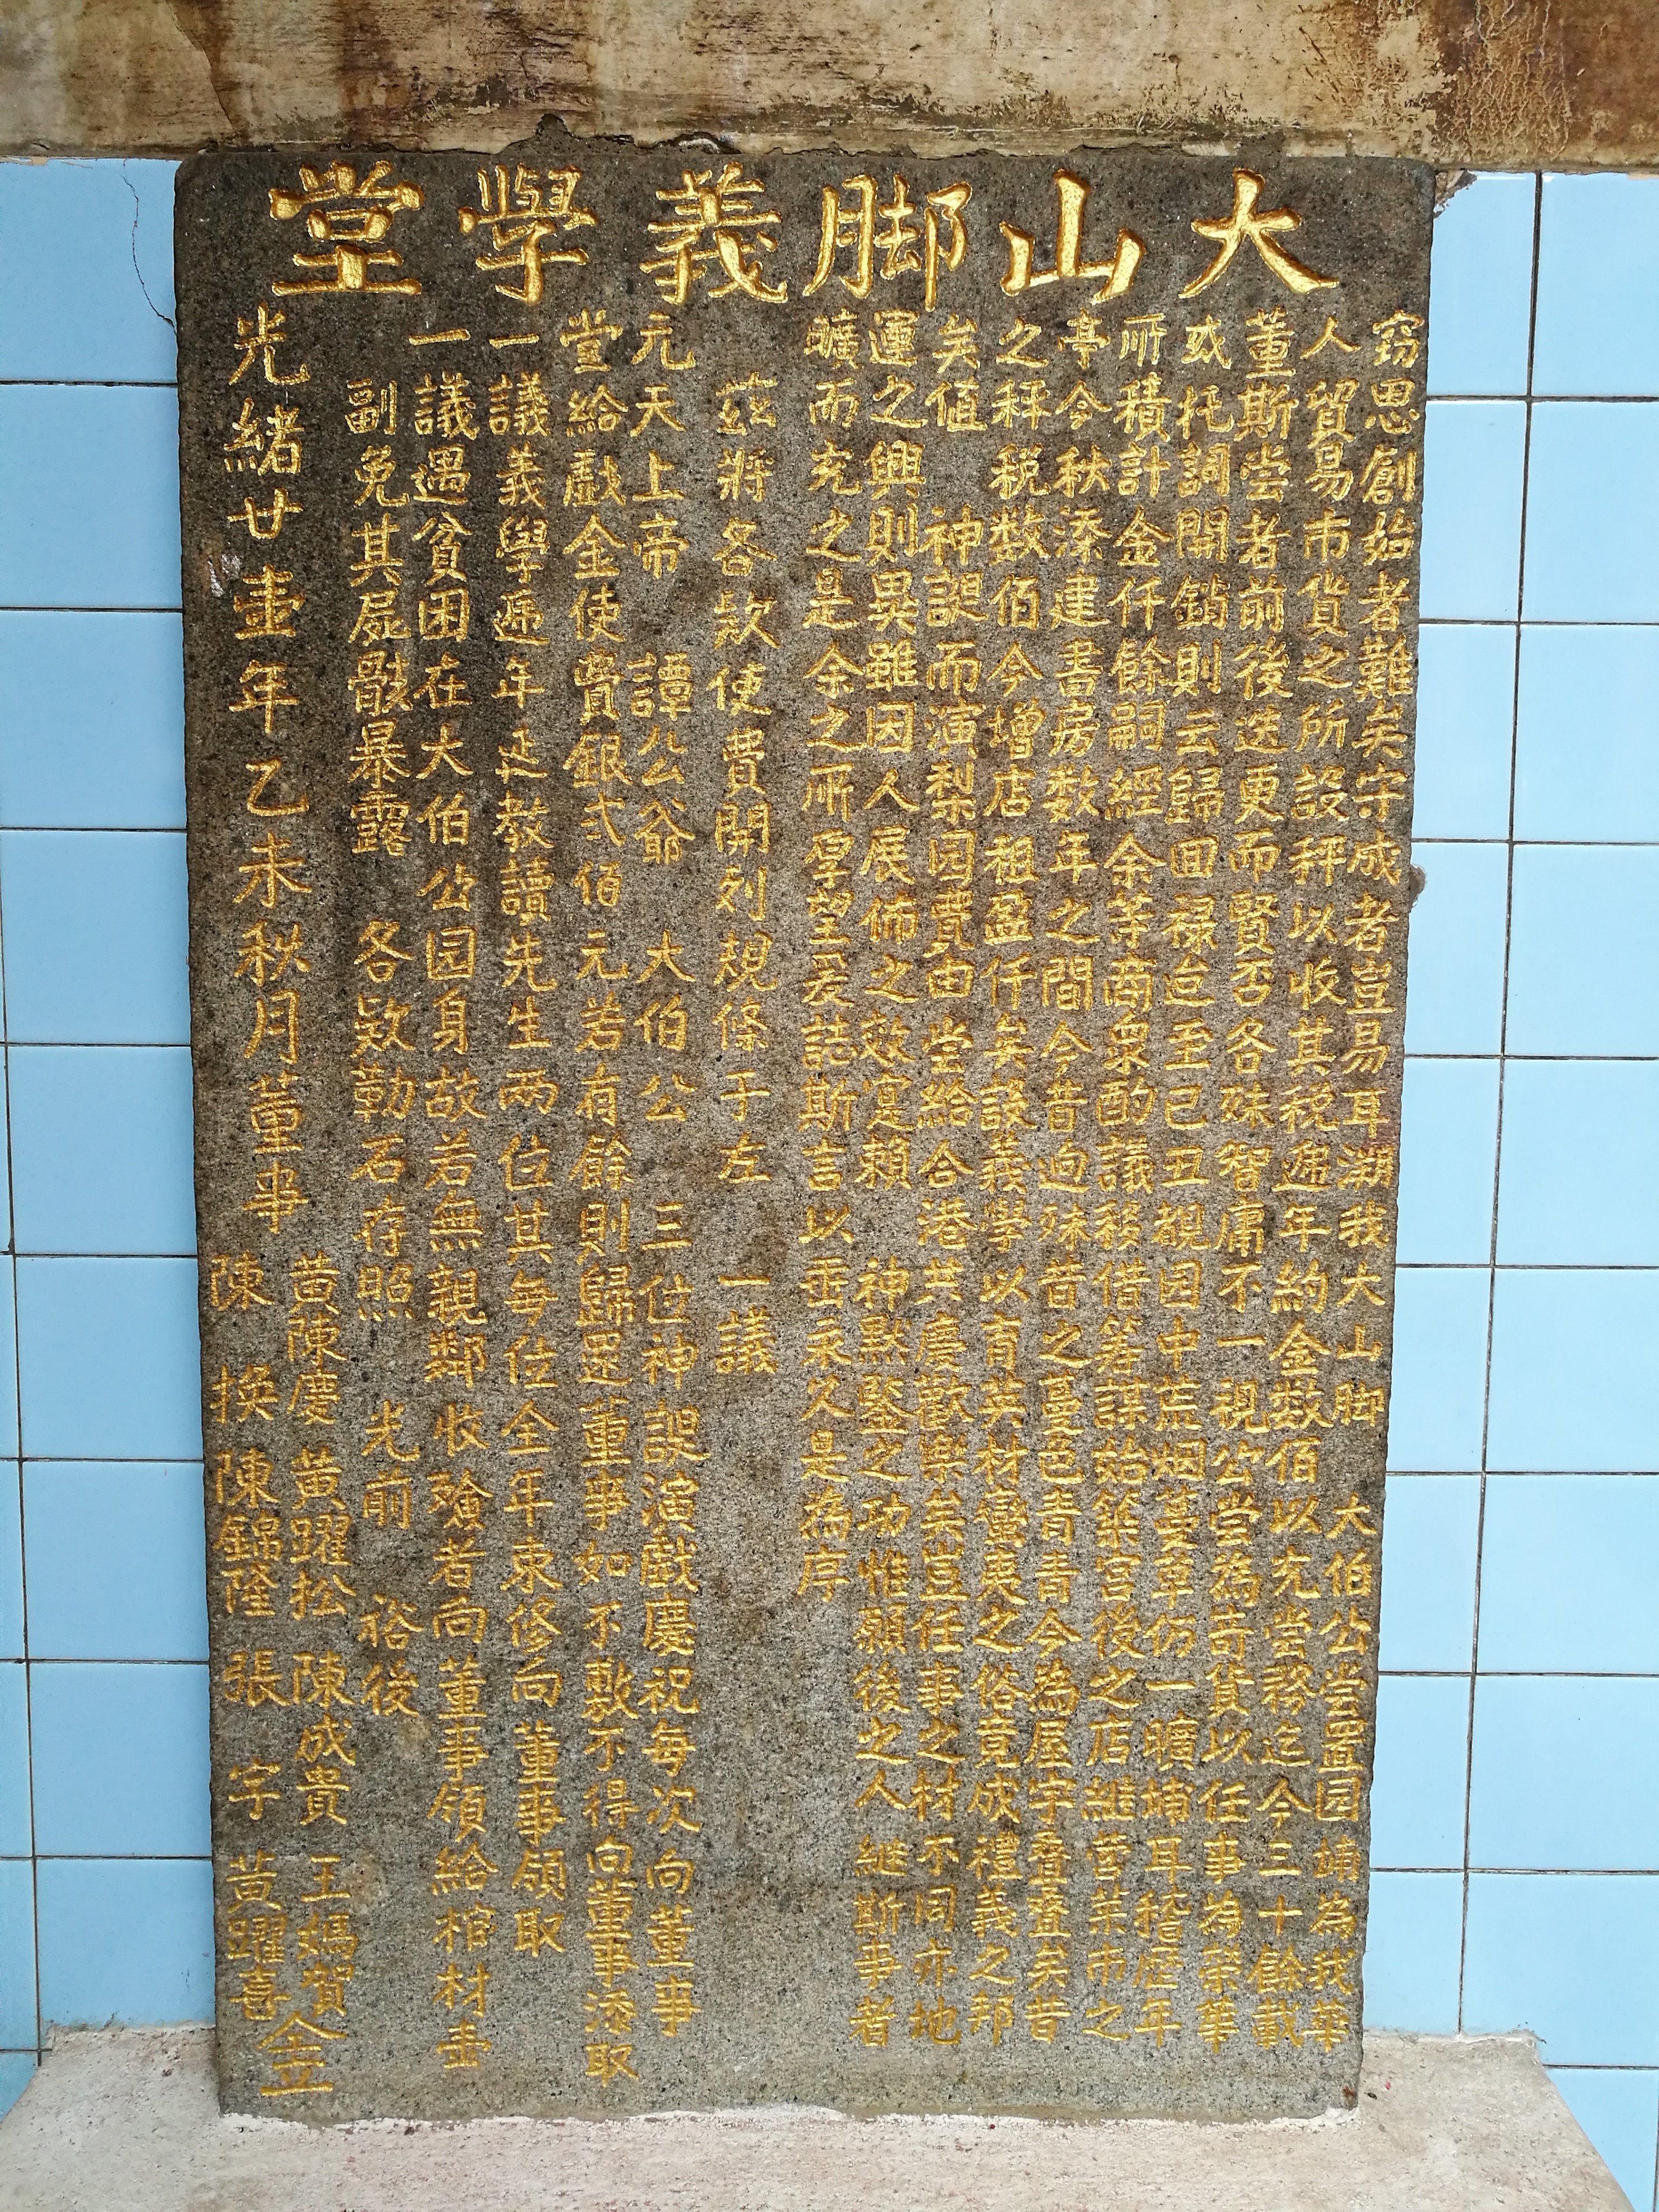 大山脚義學堂
窃思創始者難矣守成者豈易耳溯我大山脚 大伯公嘗置园埔為我華
人貿易市貨之所設秤以收其税遞年約金数佰以充嘗務迄今三十餘載
董斯嘗者前後迭更而賢否各殊智庸不一視公嘗為奇貨以任事為榮華
或托詞開銷則云歸回禄迨至己丑覩园中荒烟蔓草仍一曠埔耳稽歷年
所積計金仟餘嗣經余等商衆酌議移借箸謀始築宫後之店繼营菜市之
亭今秋添建書房数年之間今昔迥殊昔之蔓色青青今為屋宇叠叠矣昔
之秤税数佰今增店租盈仟矣設義學以育英材蠻夷之俗竟成禮義之邦
矣值 神誕而演梨园費由嘗給合港共慶歡樂矣豈任事之材不同亦地
運之興則異雖因人展佈之效寔賴 神黙鑒之功惟願後之人繼斯事者
曠而充之是余之所厚望爰誌斯言以垂永久是為序
茲將各款使費開列規條于左 一議
元天上帝 譚公爺 大伯公 三位神誕演戲慶祝每次向董事
堂給戲金使費銀弍佰元若有餘則歸還董事如不敷不得向董事添取
一議義學遞年延教讀先生两位其每位全年束修向董事領取
一議遇貧困在大伯公园身故若無親鄰收殮者向董事領給棺材壷
副免其屍骸暴露 各欵勒石存照 光前 裕後
光緒廿壷年乙未秋月董事 黄陳慶 黄躍松 陳成貴 王媽賀
陳換 陳錦隆 張宇 黄躍喜 仝立